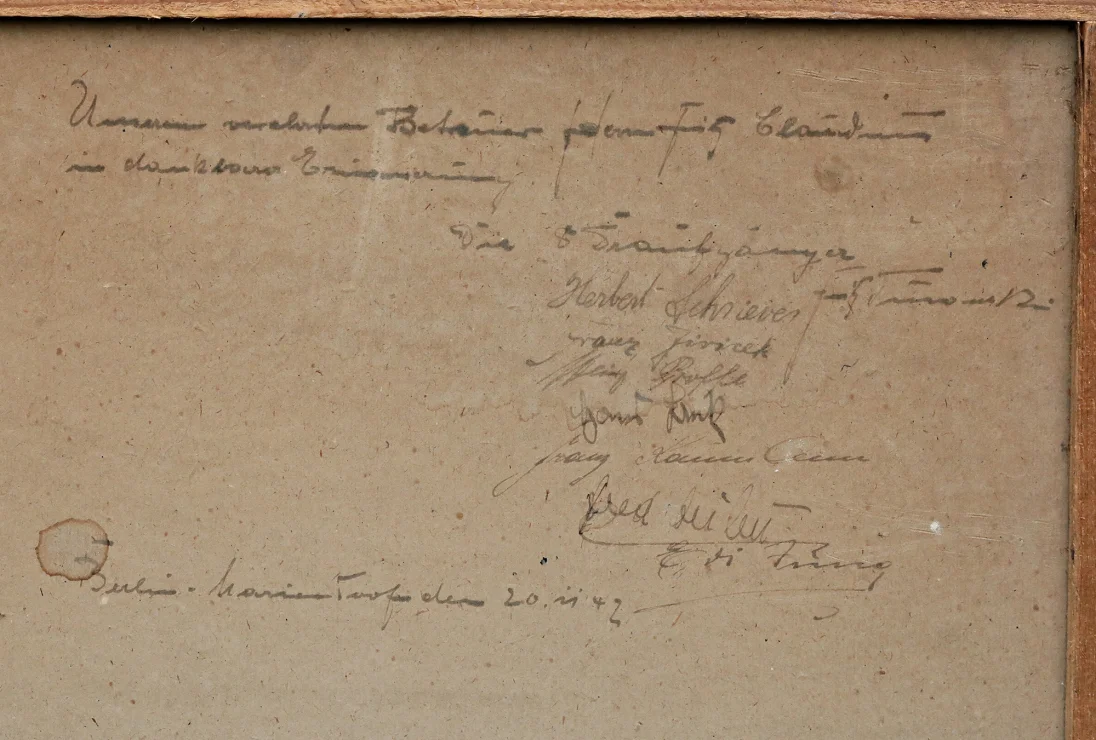 Unserem verehrten Betreuer Herrn Fritz Claudius
in dankbarer Erinnerung
Die 8 Draufgänger
Herbert Schriever
Franz Jiricek
Heinz Bolle
Hans
Franz
Fred
Edi Jung
Berlin - Mariendorf den 20. 11 42